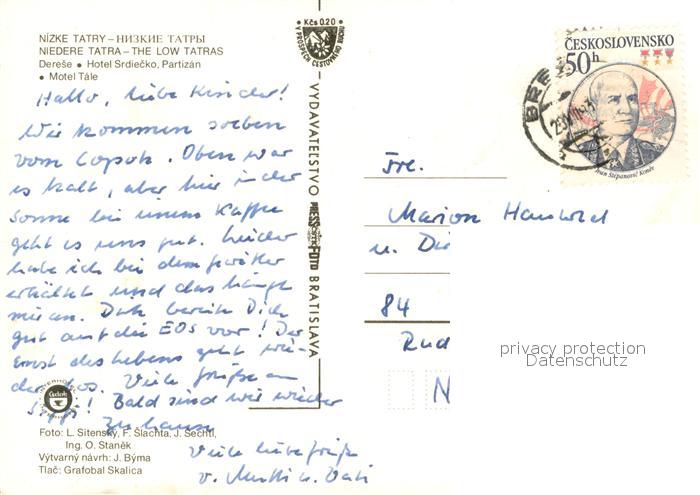 NÍZKE TATRY – НИЗКИЕ ТАТРЫ
NIEDERE TATRA – THE LOW TATRAS
Dereše • Hotel Srdiečko, Partizán
• Motel Tále
Hallo, liebe Kinder!
Wir kommen soeben
vom Copok. Oben war
es kalt, aber hier in der
Sonne bei einem Kaffee
geht es uns gut. Leider
habe ich bei dem
erkältet und das hängt
mir an. Dich
gut auf die EOS vor! Der
Ernst des Lebens geht wie-
der los. Viele Grüße an
! Bald sind wir wieder
zu hause
Viele liebe Grüße
v. Mutti u. Vati
Foto: L. Sitenský, F. Šlachta, J. Sechtl,
Ing. O. Staněk
Výtvarný návrh: J. Býma
Tlač: Grafobal Skalica
Kčs 0.20
V PROSPECH CESTOVNÉHO RUCHU
VYDAVATEĽSTVO PRESSFOTO BRATISLAVA
ČESKOSLOVENSKO
50h
Ivan Stěpanovič Koněv
Frl.
Marion
u.
84
Rud
N
privacy protection
Datenschutz